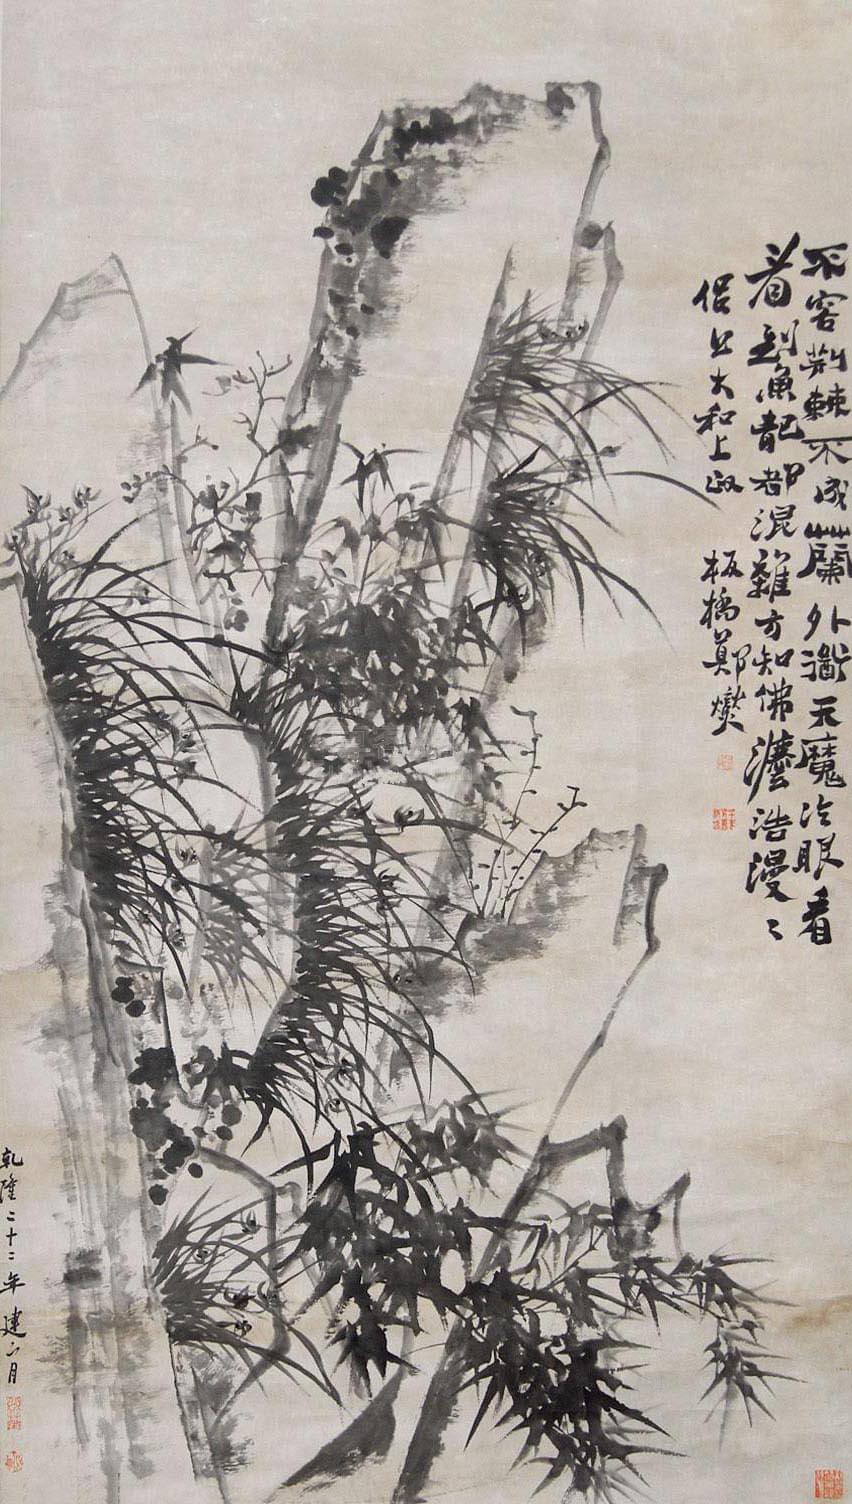 不容荆棘不成蘭外道天魔冷眼看
看到魚龍都混雜方知佛法浩漫〻
侶公大和上政
板橋鄭燮
乾隆二十二年建六月